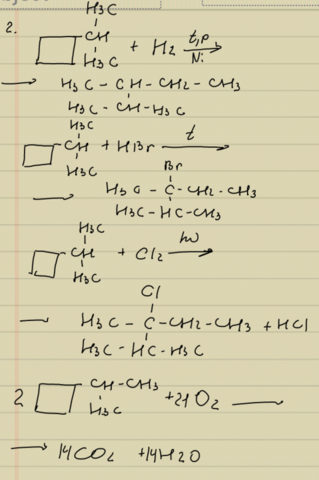 2.
H₃C
CH + H₂ t,p Ni →
H₃C
→ H₃C - CH - CH₂ - CH₃
H₃C - CH - H₃C
H₃C
CH + HBr t →
H₃C
Br
→ H₃C - C - CH₂ - CH₃
H₃C - HC - CH₃
H₃C
CH + Cl₂ hν →
H₃C
Cl
H₃C - C - CH₂ - CH₃ + HCl
H₃C - HC - H₃C
2 CH - CH₃ + 21 O₂
H₃C
→ 14CO₂ + 14H₂O